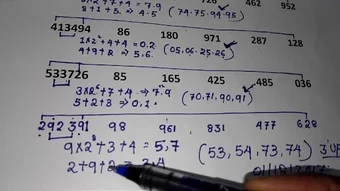 5×2+7+4 = 7.9
9+1+3. → 4.5 (74.75.94.95)
413494 86 180 971 287 128
1×2+4+4 = 0.2 (05,06.25.26)
4+9+2 → 5.6
533726 85 165 425 485 036
3×2+7+4 → 7.9 (70,71,90,91)
5+2+3 → 0.1
292391 98 961 831 477 628
9×2+3+4 = 5.7 (53,54,73,74)
2+9+2